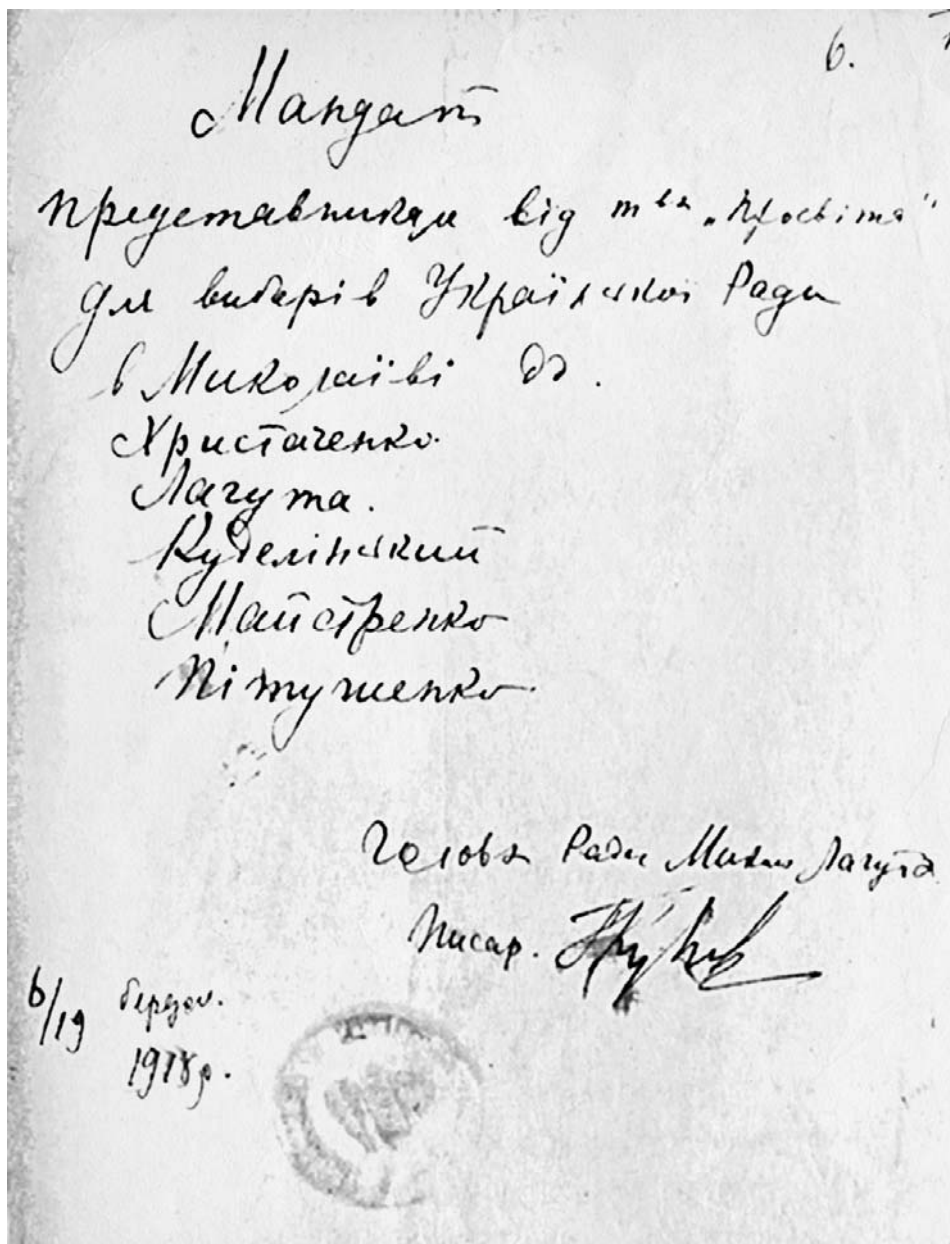 6.
Мандат
представникам від т-ва „Просвіта"
для виборів Української Ради
в Миколаїві дд.
Христаченко.
Лагута.
Куделінський
Майстренко
Пітушенко.
Голова Ради Лагута
Писар.
6/19
1918 р.